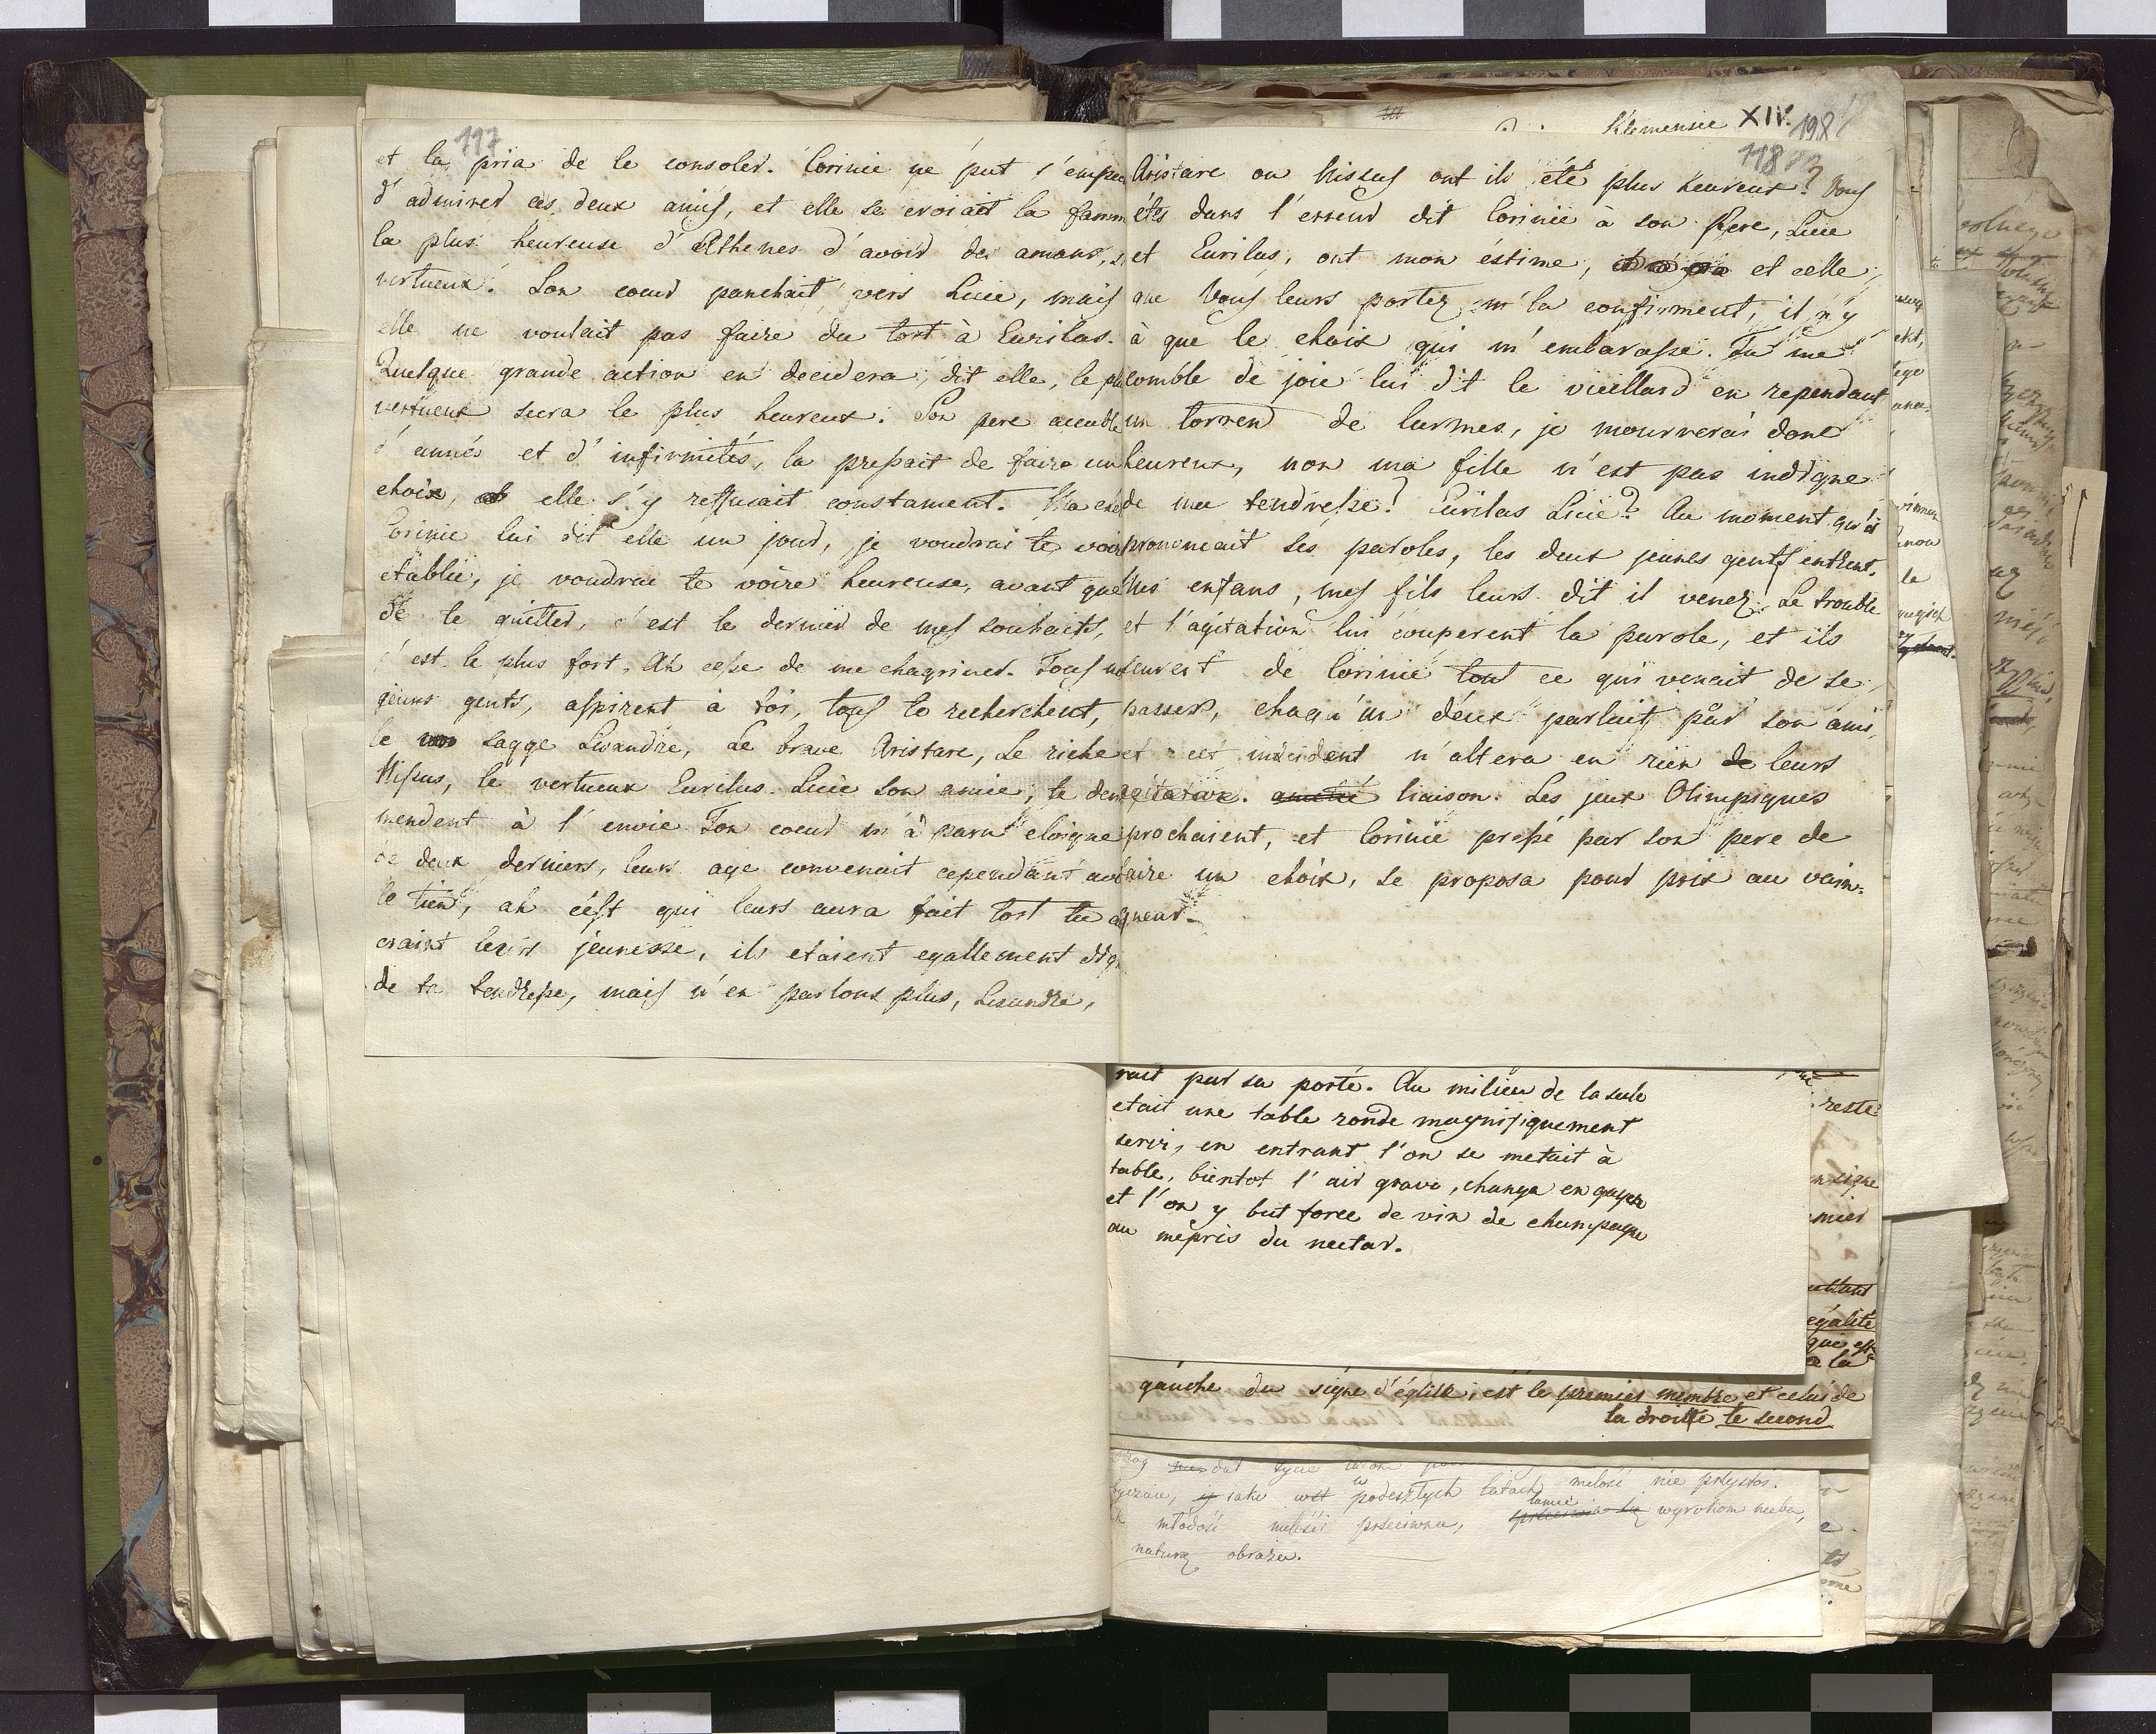 117
et la pria de le consoler. Corinie ne put s'empe
d'admirer ces deux amis, et elle se croiait la famm
la plus heureuse d'Athenes d'avoir des amans, s
vertueux. Son coeur panchait vers Licie, mais
elle ne voulait pas faire du tort à Eurilas.
Quelque grande action en decidera, dit elle, le plu
vertueux sera le plus heureux. Son pere accablé
d'annés et d'infirmités, la preſsait de faire un
choix, elle s'y reffusait constament. Ma che
Corinie lui dit elle un jour, je voudrai te voir
établie, je voudrai te voire heureuse, avant que
de te quitter, c'est le dernier de mes souhaits,
c'est le plus fort. Ah ceſse de me chagriner. Tous no
jeuns gents, aſpirent à toi, tous te recherchent,
le sagge Lisandre, Le brave Aristare, Le riche
Niſsus, le vertueux Eurilus. Licie son amie, te dem
mendent à l'envie. Ton coeur m'à paru eloigne
de deux derniers, leurs age convenait cependant au
le tien, ah c'est qui leurs aura fait tort tu a
craint leurs jeunesse, ils etaient egallement dig
de ta tendreſse, mais n'en parlons plus, Lisandre,
Klemensie XIV. 198
118
Aristare ou Nissus ont ils été plus heureux? Vous
étés dans l'erreur dit Corinie à son Pere, Licie
et Eurilus, ont mon éstime, et celle
que Vous leurs portez m'la confirment, il n'y
à que le choix qui m'embaraſse. Tu me
comble de joie lui dit le vieillard en rependant
un torrend de larmes, je mourrerai donc
heureux, non ma fille n'est pas indigne
de ma tendreſse! Eurilas Licie? Au moment qu'il
prononcait ses paroles, les deux jeunes gents entrent.
Mes enfans, mes fils leurs dit il venez! Le trouble
et l'agitation lui couperent la parole, et ils
seurent de Corinie tout ce qui venait de se
passer, chaqu'un deux parlait pour son ami,
et cet incident n'altera en rien de leurs
amitié liaison. Les jeux Olimpiques
prochaient, et Corinie preſsé par son pere de
faire un choix, se proposa pour prix au vain-
queur.
rait par sa porte. Au milieu de la sale
etait une table ronde magnifiquement
servi, en entrant l'on se metait à
table, bientot l'air grave, changa en gayté
et l'on y but force de vin de champagne
au mépris du nectar.
reste
égalité
que est
à la
gauche du signe d'églité, est le premier membre et celui de
la droitte le second
w podeszłych latach miłość nie przystoi.
łamie
młodość miłości przeciwna, wyrokom nieba,
naturę obraża.